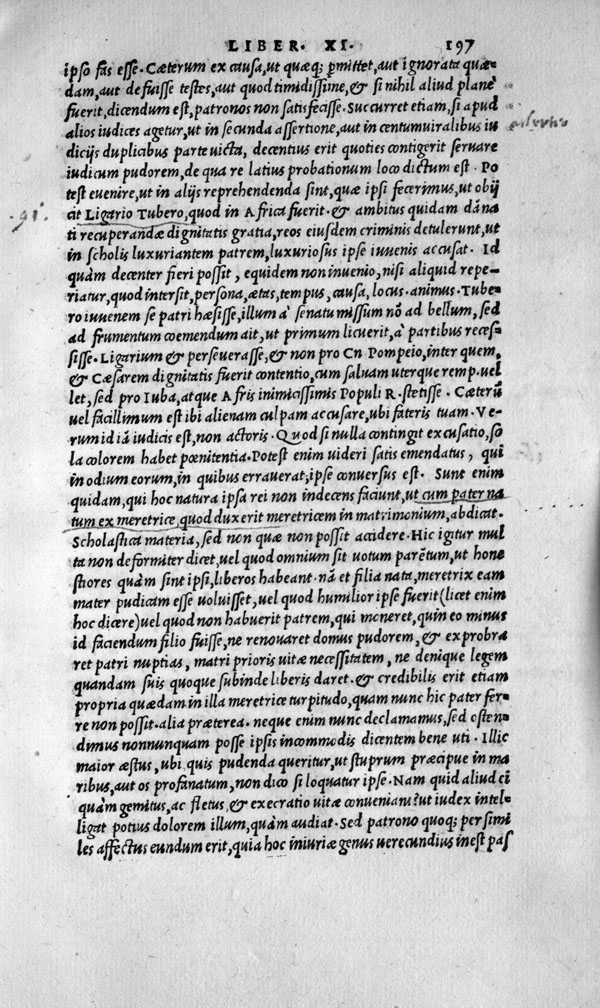 LIBER. XI. 197
ipso fas esse. Cæterum ex causa, ut quæq; p̄mittet, aut ignorata quæ-
dam, aut defuisse testes, aut quod timidissime, & si nihil aliud planè
fuerit, dicendum est, patronos non satisfecisse. Succurret etiam, si apud
alios iudices agetur, ut in secunda assertione, aut in centumuiralibus iu
dicijs duplicibus parte uicta, decentius erit quoties contigerit seruare
iudicum pudorem, de qua re latius probationum loco dictum est. Po
test euenire, ut in alijs reprehendenda sint, quæ ipsi fecerimus, ut obij
cit Ligario Tubero, quod in Africa fuerit. & ambitus quidam dāna
ti recuperandæ dignitatis gratia, reos eiusdem criminis detulerunt, ut
in scholis luxuriantem patrem, luxuriosus ipse iuuenis accusat. Id
quàm decenter fieri possit, equidem non inuenio, nisi aliquid repe-
riatur, quod intersit, persona, ætas, tempus, causa, locus. animus. Tube-
ro iuuenem se patri hæsisse, illum à senatu missum nō ad bellum, sed
ad frumentum coemendum ait, ut primum licuerit, à partibus reces-
sisse. Ligarium & perseuerasse, & non pro Cn Pompeio, inter quem,
& Cæsarem dignitatis fuerit contentio, cum saluam uterque remp. uel
let, sed pro Iuba, atque Afris inimicissimis Populi R. stetisse. Cæterū
uel facillimum est ibi alienam culpam accusare, ubi fateris tuam. Ve-
rum id iā iudicis est, non actoris. Quod si nulla contingit excusatio, so
la colorem habet pœnitentia. Potest enim uideri satis emendatus, qui
in odium eorum, in quibus errauerat, ipse conuersus est. Sunt enim
quidam, qui hoc natura ipsa rei non indecens faciunt, ut cum pater na
tum ex meretrice, quod duxerit meretricem in matrimonium, abdicat.
Scholastica materia, sed non quæ non possit accidere. Hic igitur mul
ta non deformiter dicet, uel quod omnium sit uotum parētum, ut hone
stiores quàm sint ipsi, liberos habeant. nā et filia nata, meretrix eam
mater pudicam esse uoluisset, uel quod humilior ipse fuerit (licet enim
hoc dicere) uel quod non habuerit patrem, qui moneret, quin eo minus
id faciendum filio fuisse, ne renouaret domus pudorem, & exprobra
ret patri nuptias, matri prioris uitæ necessitatem, ne denique legem
quandam suis quoque subinde liberis daret. & credibilis erit etiam
propria quædam in illa meretrice turpitudo, quam nunc hic pater fer-
re non possit. alia præterea. neque enim nunc declamamus, sed osten-
dimus nonnunquam posse ipsis incommodis dicentem bene uti. Illic
maior æstus, ubi quis pudenda queritur, ut stuprum præcipue in ma
ribus, aut os profanatum, non dico si loquatur ipse. Nam quid aliud ei
quàm gemitus, ac fletus, & execratio uitæ conueniant? ut iudex intel-
ligat potius dolorem illum, quàm audiat. Sed patrono quoq; per simi
les affectus eundum erit, quia hoc iniuriæ genus uerecundius inest pas